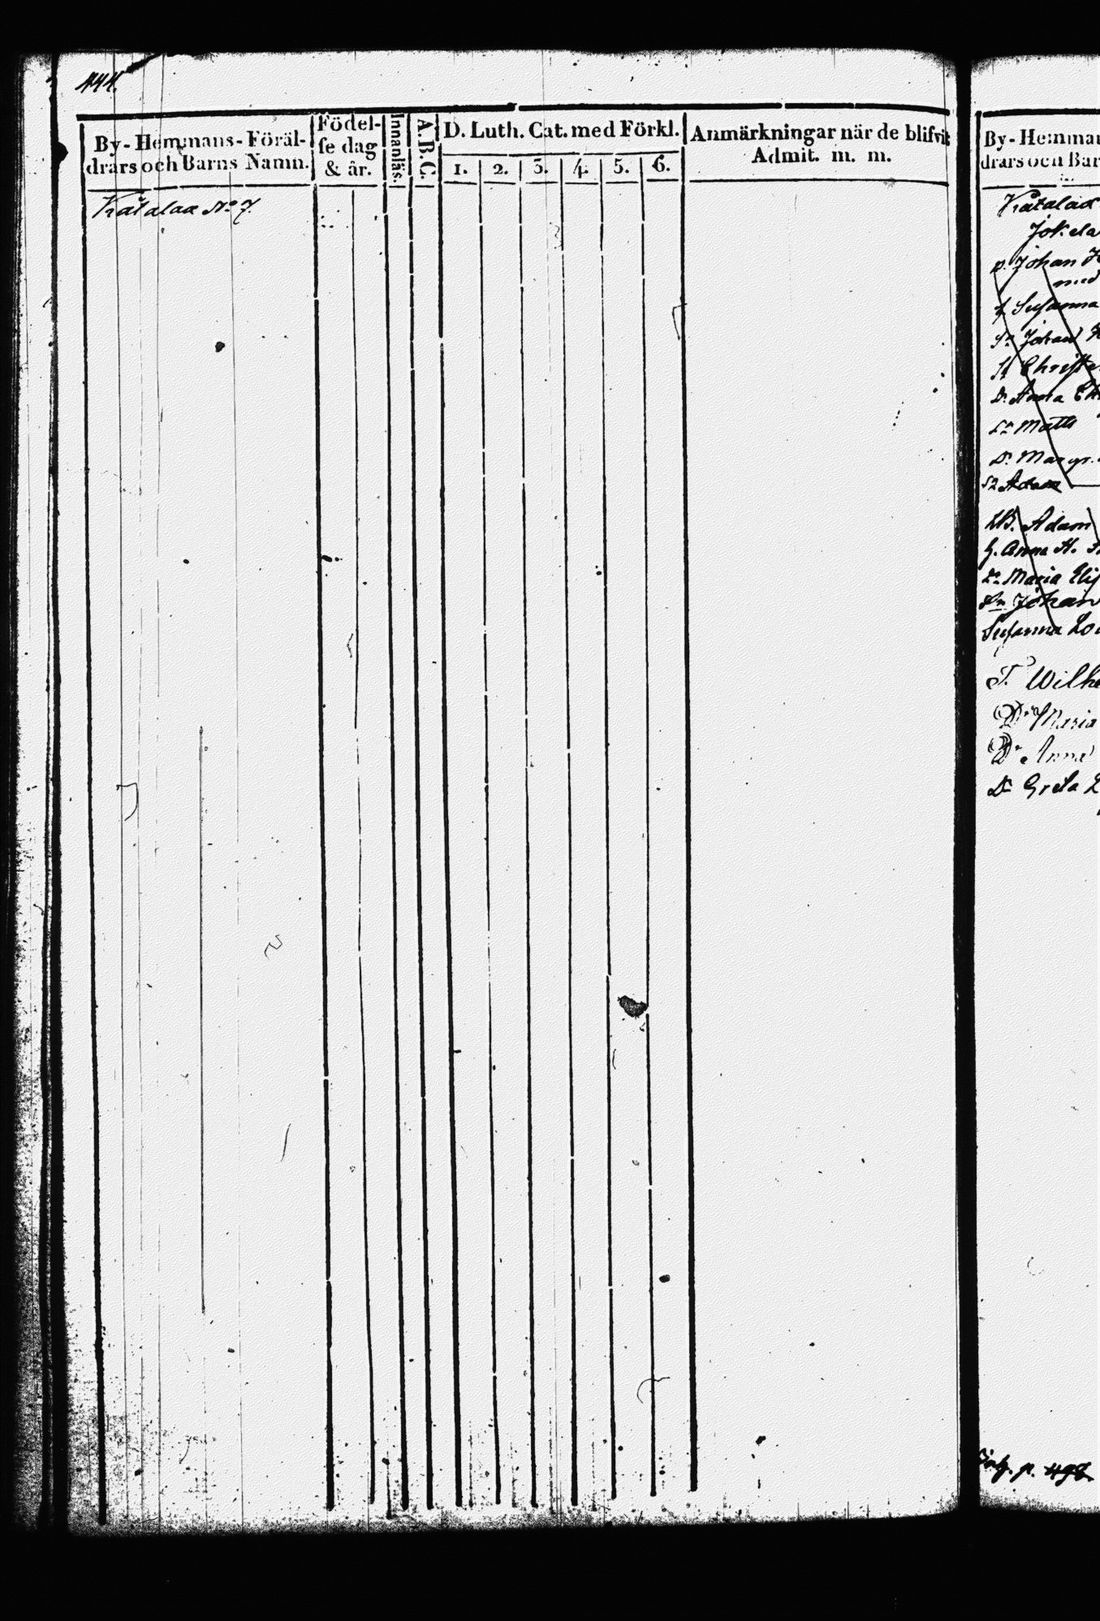 444.
By- Hemmans- Föräl-
drars och Barns Namn.
Födel-
se dag
& år.
Innanläs.
A.B.C.
D. Luth. Cat. med Förkl.
1. 2. 3. 4. 5. 6.
Anmärkningar när de blifvit
Admit. m. m.
Katalaa No 7.
By- Hemman
drars och Bar
Katalaa
Jokela
Johan
med
Susanna
Sn Johan
Christ
Dr Anna
Sn Matts
Dr Margr.
Sn Adam
Adam
Anna H.
Dr Maria Elis
Sn Johan
Susanna Lo
Wilhe
Dr Maria
Dr Anna
Dr Greta L
p. 497